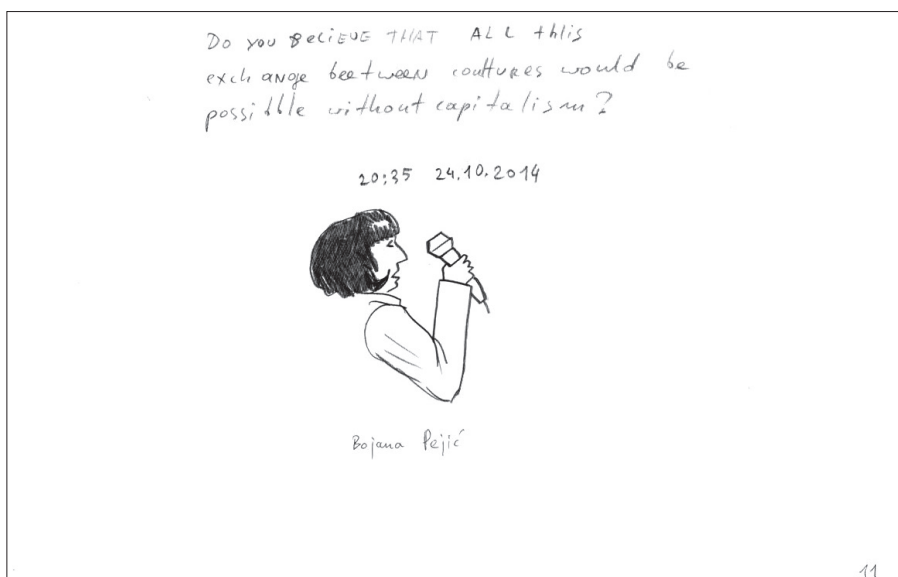 Do you BeCiEVE THAT ALL thlis
exchange beetween coultures would be
possibble without capitalism?
20:35 24.10.2014
Bojana Pejić
11